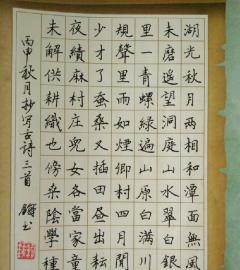 湖光秋月两相和潭面無風
未磨遥望洞庭山水翠白銀
里一青螺綠遍山原白满川
規聲里雨如煙鄉村四月閒
少才了蚕桑又插田昼出耘
夜績麻村庄兒女各當家童
未解供耕織也傍桑陰學種
丙申秋月抄写古詩三首